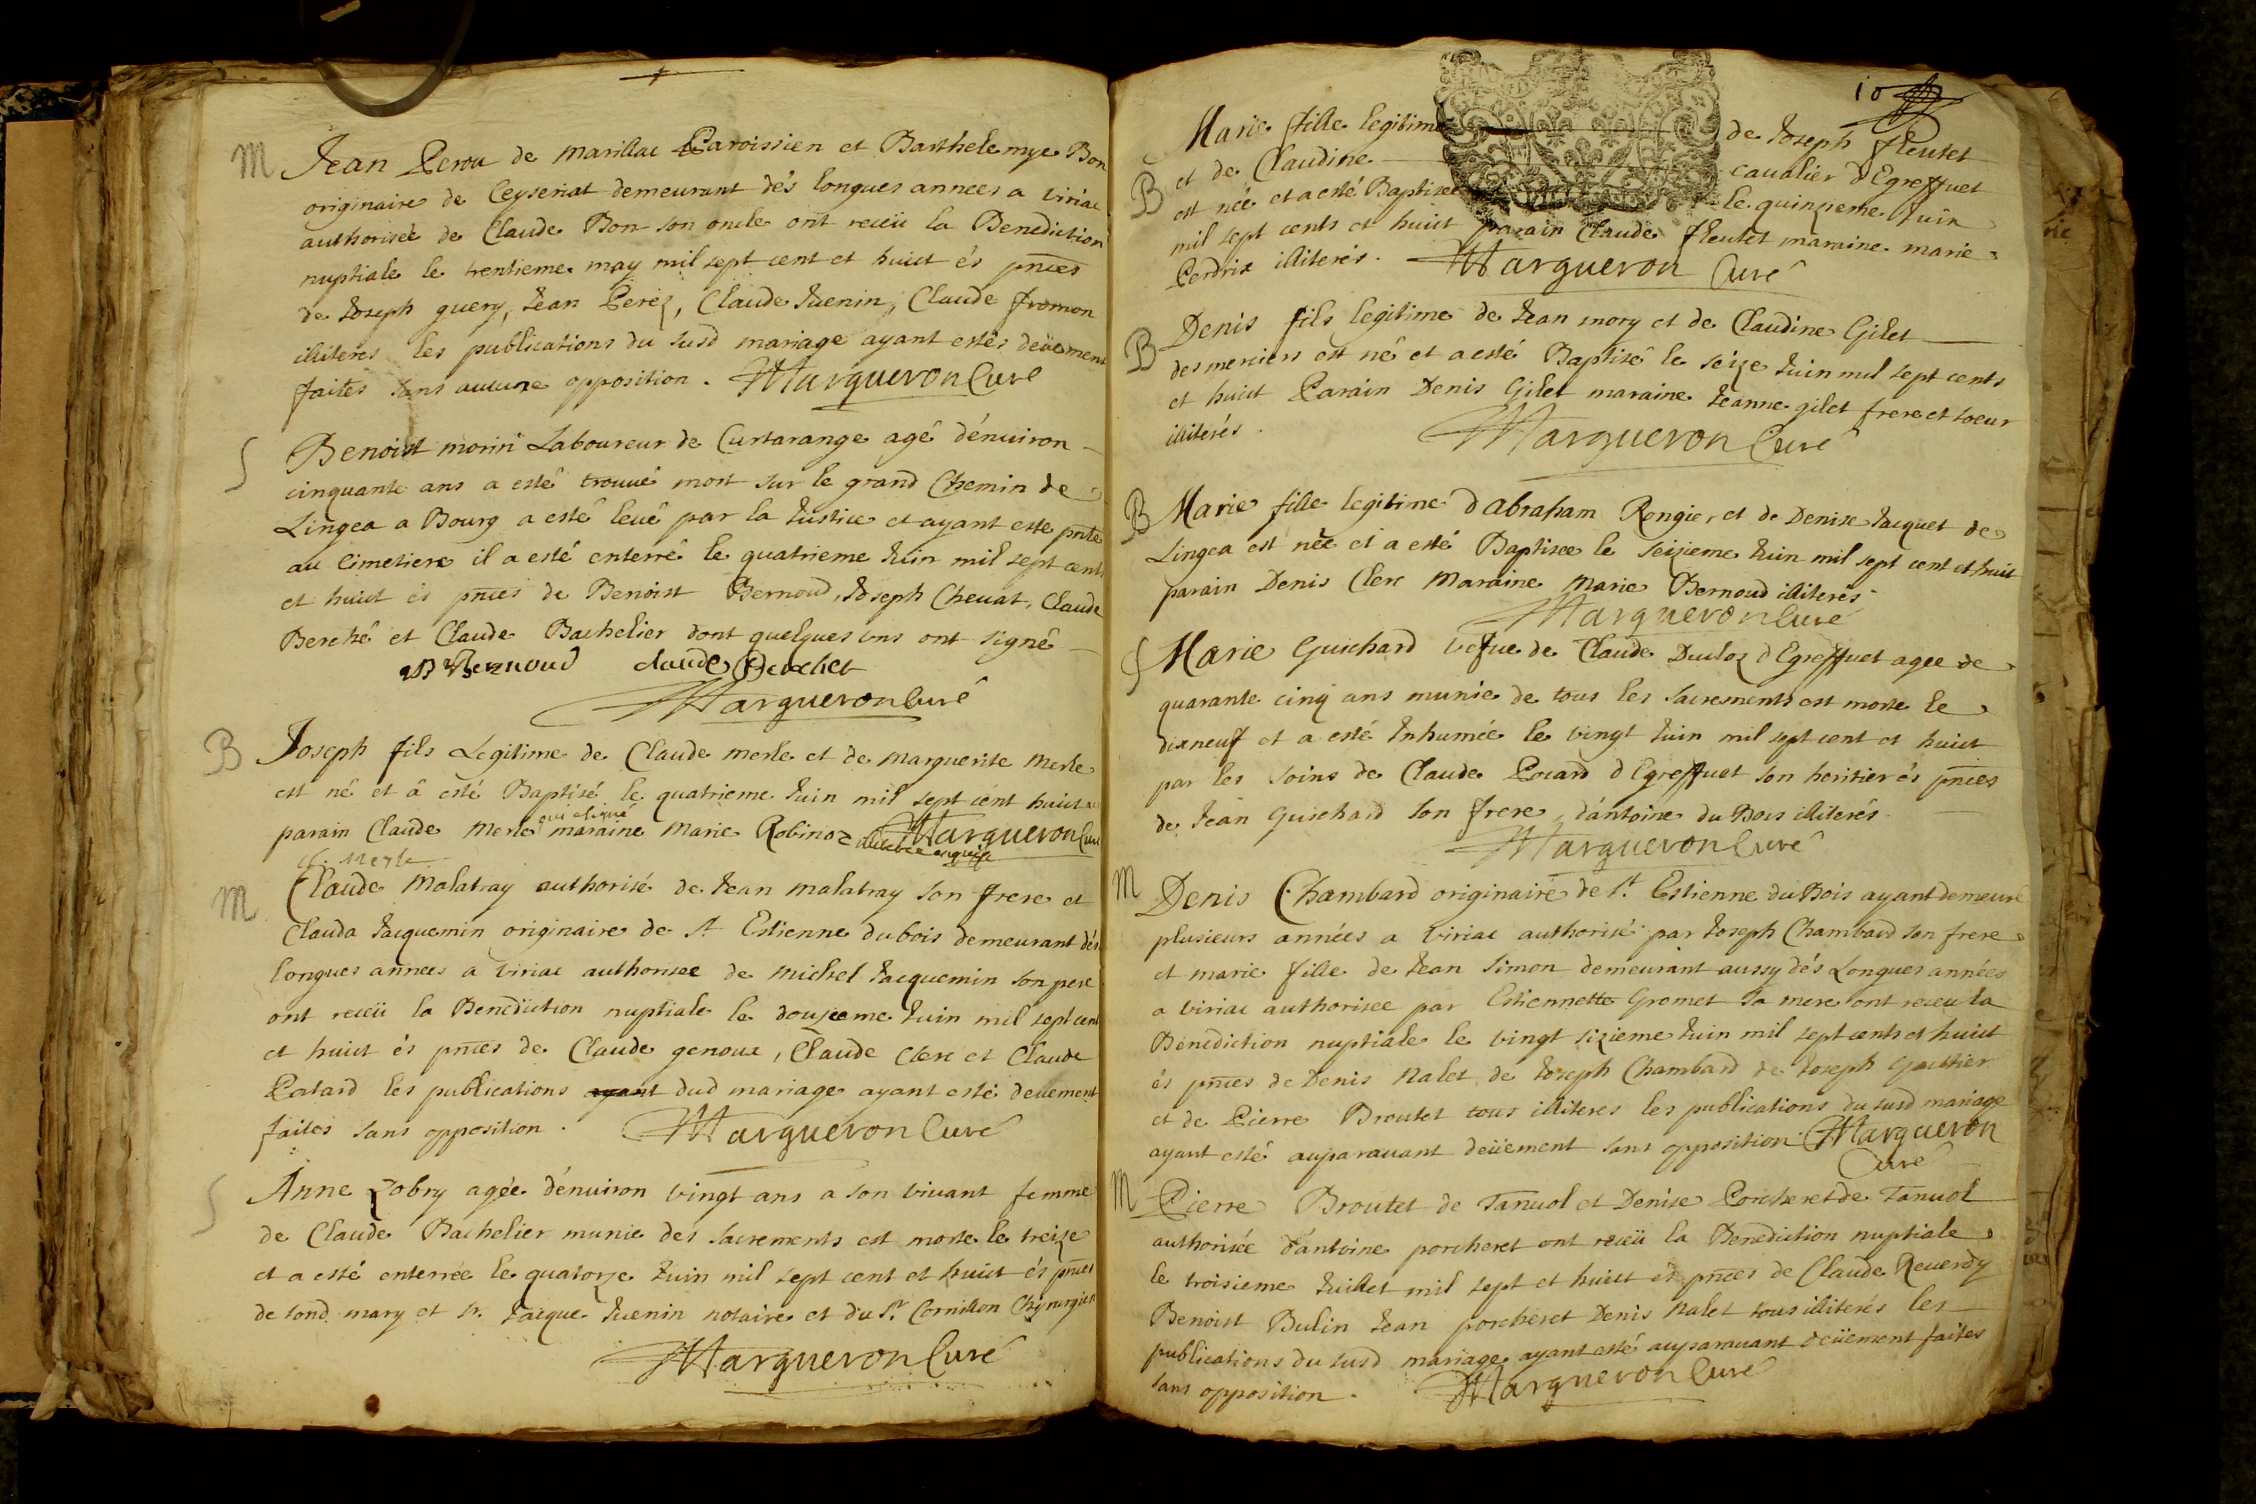 M Jean Perou de Marillac Paroissien et Barthelemye Bon
originaire de Ceyseriat demeurant dés longues annees a Viriac
authorisée de Claude Bon son oncle ont receü la Benediction
nuptiale le trentieme may mil sept cent et huict és pnces
de Joseph guery, Jean Perez, Claude Juenin, Claude fromon
illiteres les publications du susd mariage ayant estés deüement
faites sans aucune opposition. Margueron Curé
S Benoist morin Laboureur de Curtarange agé dénuiron
cinquante ans a esté trouué mort sur le grand Chemin de
Lingea a Bourg a esté leué par la Justice et ayant este pnté
au Cimetiere il a esté enterré le quatrieme Juin mil sept cents
et huict és pnces de Benoist Bernoud, Joseph Cheuat, Claude
Berché et Claude Bachelier dont quelques uns ont signé
B Bernoud claude Berchet
Margueron Curé
B Joseph fils Legitime de Claude merle et de Marguerite Merle
est né et â esté Baptisé le quatrieme Juin mil sept cent huict
parain Claude Merle qui a signé maraine Marie Robin illiteree enquise Margueron Curé
C. Merle
M Claude Malatray authorisé de Jean Malatray son frere et
Clauda Jacquemin originaire de St Estienne du bois demeurant dés
longues annees a Viriac authorisee de Michel Jacquemin son pere
ont receü la Benediction nuptiale le douzieme Juin mil sept cent
et huict és pnces de Claude genoux, Claude Clerc et Claude
Palard les publications ayant dud mariage ayant esté deuement
faites sans opposition. Margueron Curé
S Anne Zobry agée dénuiron vingt ans a son viuant femme
de Claude Bachelier munie des sacrements est morte le treize
et a esté enterrée le quatorze Juin mil sept cent et huict és pnces
de sond mary et sr. Jacque Juenin notaire et du Sr. Cornillon Chyrurgien
Margueron Curé
10
Marie fille legitime de Joseph fleutet
B et de Claudine cavalier d'Egreffuet
est née et a esté Baptisee le quinzieme Juin
mil sept cents et huict parain Claude fleutet maraine marie
Perdrix illiterés. Margueron Curé
B Denis fils legitime de Jean mory et de Claudine Gilet
des merciers est né et a esté Baptisé le seize Juin mil sept cents
et huict Parain Denis Gilet maraine Jeanne gilet frere et soeur
illiterés. Margueron Curé
B Marie fille legitime d'Abraham Rongier, et de Denise Jacquet de
Lingea est née et a esté Baptisee le seizieme Juin mil sept cent et huict
parain Denis Clerc Maraine Marie Bernoud illiterés
Margueron Curé
S Marie Guichard vefue de Claude Ducloz d'Egreffuet agee de
quarante cinq ans munie de tous les sacrements est morte le
dixneuf et a esté Inhumée le vingt Juin mil sept cent et huict
par les soins de Claude Pouard d'Egreffuet son heritier és pnces
de Jean Guichard son frere, d'antoine du Bois illiterés
Margueron Curé
M Denis Chambard originaire de St. Estienne du Bois ayant demeuré
plusieurs années a Viriac authorisé par Joseph Chambard son frere
et marie fille de Jean Simon demeurant aussy dés Longues années
a Viriac authorisee par Estiennette Gromet sa mere ont receu la
Benediction nuptiale le vingt sizieme Juin mil sept cents et huict
és pnces de Denis Nalet de Joseph Chambard de Joseph Gauthier
et de Pierre Broutet tous illiteres les publications du susd mariage
ayant esté auparauant deüement sans opposition Margueron
Curé
M Pierre Broutet de Tanuol et Denise Porcheret de Tanuol
authorisée d'antoine porcheret ont receü la Benediction nuptiale
le troisieme Juillet mil sept et huict és pnces de Claude Reuerdy
Benoist Bulin Jean porcheret Denis Nalet tous illiterés les
publications du susd mariage ayant esté auparauant deüement faites
sans opposition. Margueron Curé